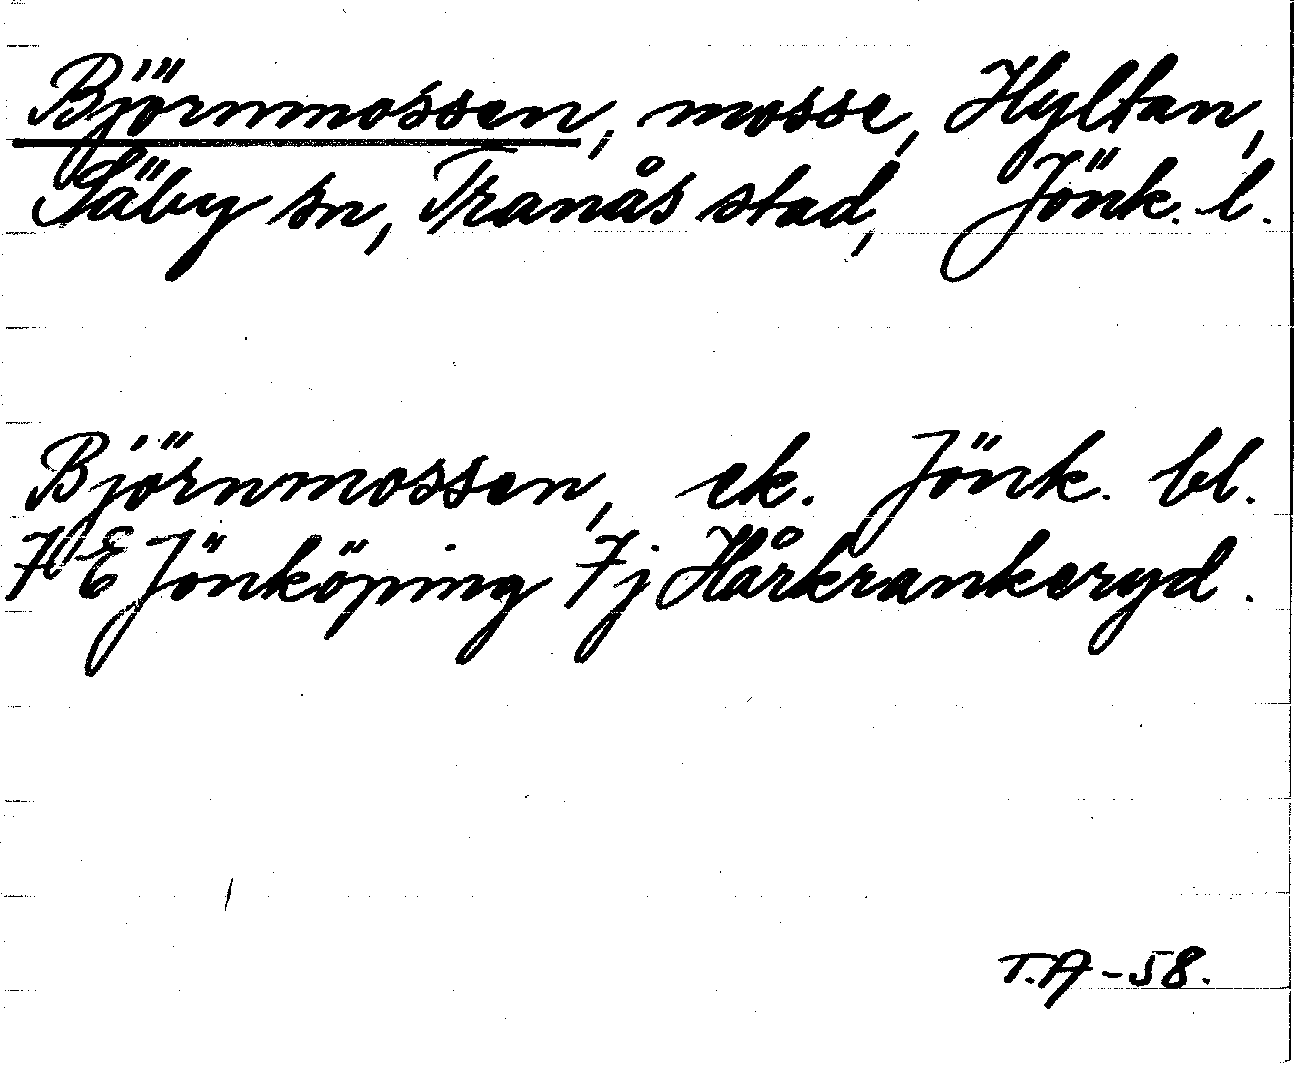 Björnmossen, mosse, Hyltan,
Säby sn, Tranås stad, Jönk. l.
Björnmossen, ek. Jönk. bl.
7 E Jönköping 7 j Hårkrankeryd.
T.A -58.